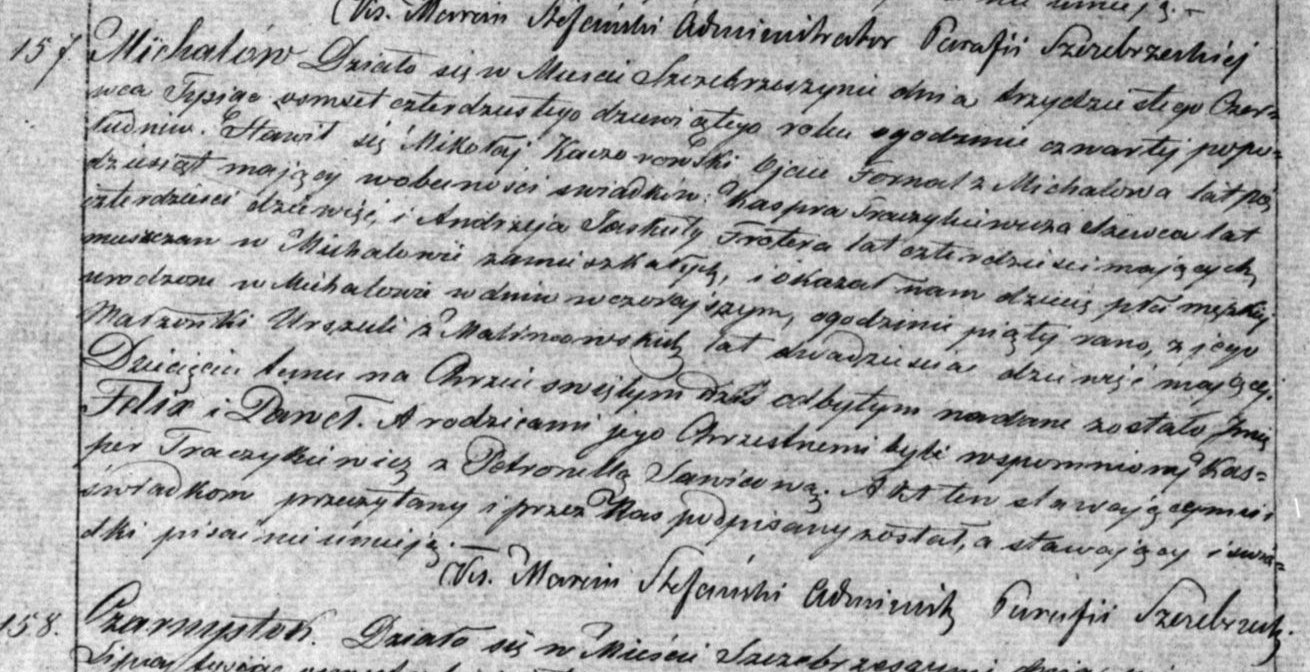 (Xs. Marcin Stefański Administrator Parafii Szczebrzeskiej
157. Michalów Działo się w Mieście Szczebrzeszynie dnia trzydziestego Czer=
wca Tysiąc osmset czterdziestego dziewiątego roku ogodzinie czwartej popo=
łudniu. Stawił się Mikołaj Kaczorowski Ojciec Fornal z Michalowa lat pię
dziesiąt mający wobecności swiadków: Kaspra Traczykiewicza Szewca lat
czterdzieści dziewięć, i Andrzeja Paskuty Frotera lat czterdzieści mających
mieszczan w Michalowie zamieszkałych, i okazał nam dziecię płci męzkiej
urodzone w Michalowie w dniu wczorajszym, ogodzinie piątej rano, z jego
Małżonki Urszuli z Malinowskich lat dwadzieścia dziewięć mającej.
Dziecięciu temu na Chrzcie swiętym dziś odbytym nadane zostało Imię
Felix i Paweł. A rodzicami jego Chrzestnemi byli wspomniony Kas=
per Traczykiewicz z Petronellą Sawicową. Akt ten stawającemu i
świadkom przeczytany i przez Nas podpisany został, a stawający i swia=
dki pisać nie umieją.
(Xs. Marcin Stefański Administ Parafii Szczebrzeski
158. Czarnystok. Działo się w Mieście Szczebrzeszynie dnia
Lipca tysiąc